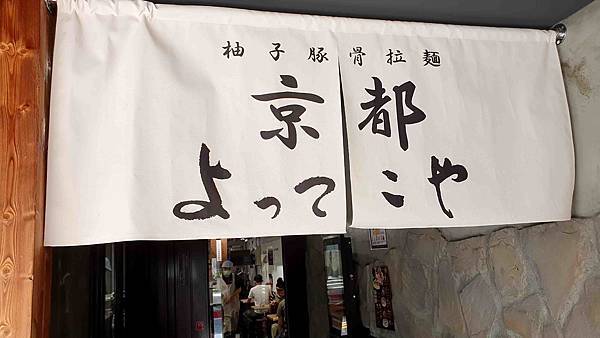 柚子豚骨拉麵
京都
よってこや